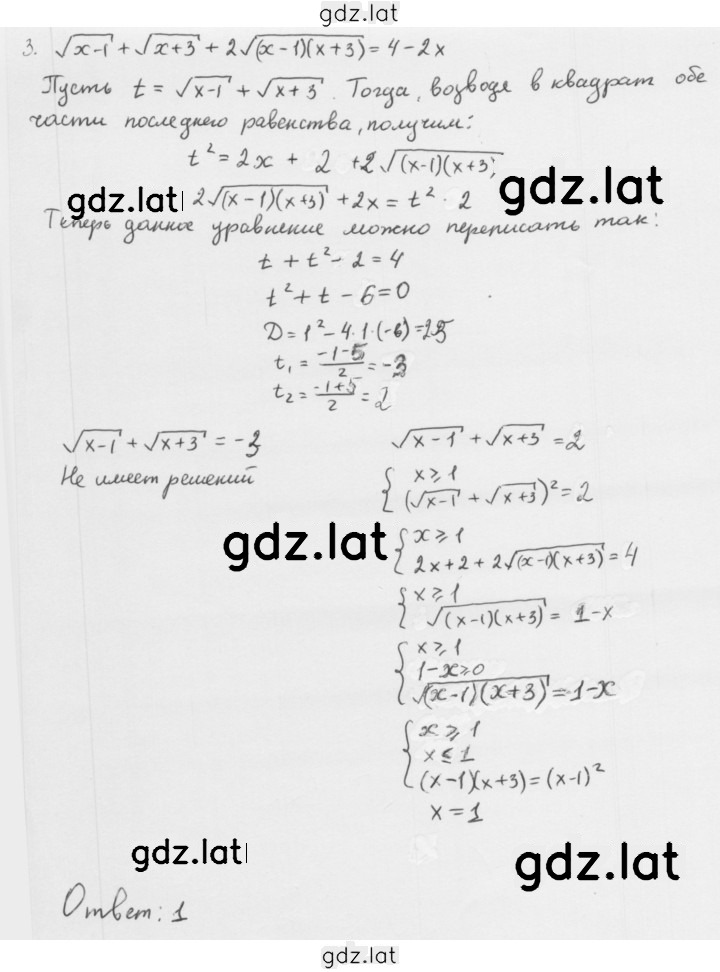 gdz.lat
3. √(x-1) + √(x+3) + 2√((x-1)(x+3)) = 4-2x
Пусть t = √(x-1) + √(x+3). Тогда, возводя в квадрат обе
части последнего равенства, получим:
t² = 2x + 2 + 2√((x-1)(x+3))
gdz.lat
gdz.lat
2√((x-1)(x+3)) + 2x = t² - 2
Теперь данное уравнение можно переписать так:
t + t² - 2 = 4
t² + t - 6 = 0
D = 1² - 4·1·(-6) = 25
t₁ = (-1-5)/2 = -3
t₂ = (-1+5)/2 = 2
√(x-1) + √(x+3) = -3
Не имеет решений
√(x-1) + √(x+3) = 2
{ x ⩾ 1
(√(x-1) + √(x+3))² = 2
gdz.lat
{ x ⩾ 1
2x + 2 + 2√((x-1)(x+3)) = 4
{ x ⩾ 1
√((x-1)(x+3)) = 1-x
{ x ⩾ 1
1-x ⩾ 0
√((x-1)(x+3)) = 1-x
{ x ⩾ 1
x ≤ 1
(x-1)(x+3) = (x-1)²
x = 1
gdz.lat
gdz.lat
Ответ: 1
gdz.lat